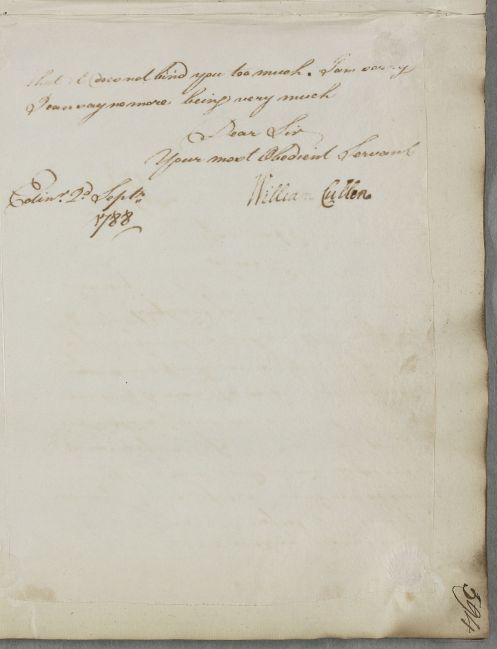 that it does not bind you too much. I am sorry
I can say no more, being very much
Dear Sir
Your most Obedient Servant
William Cullen
Edinr. 2d. Septr.
1788